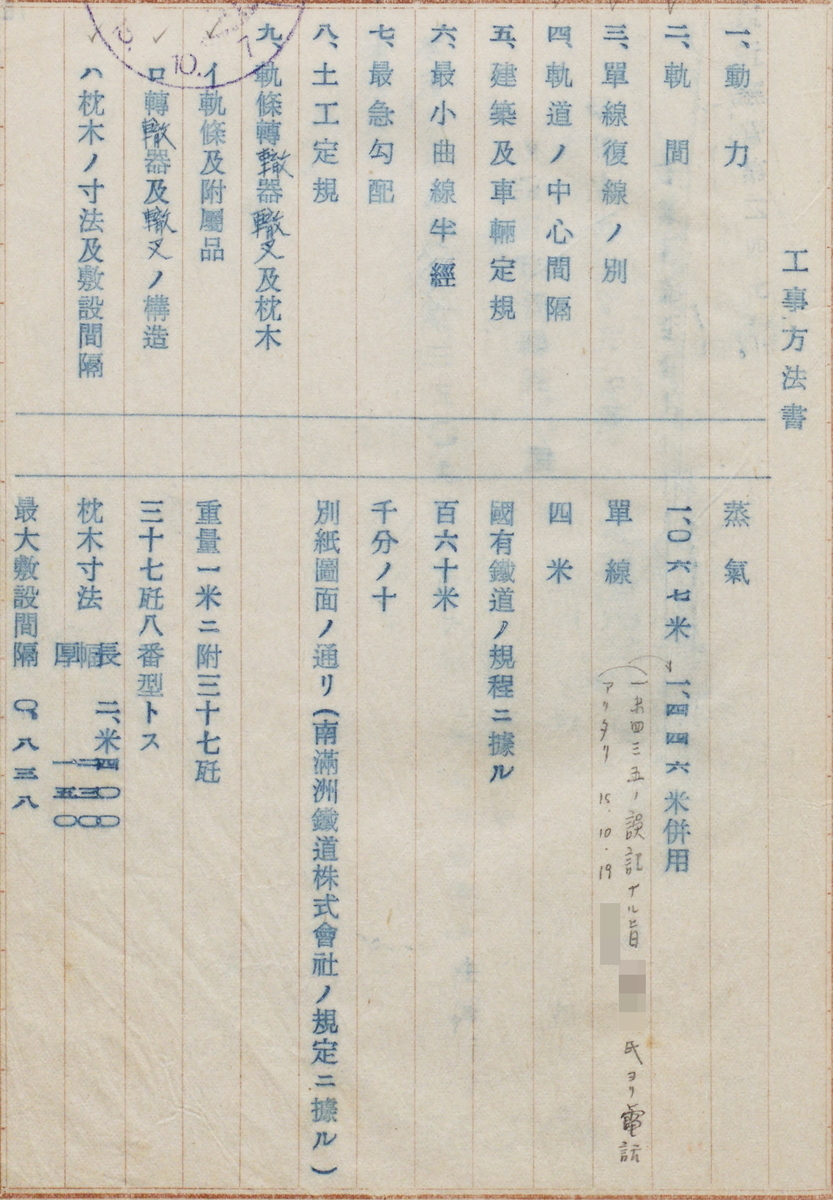 工事方法書
一、動力　蒸氣
二、軌間　一、〇六七米　一、四四六米併用
（一米四三五ノ誤記ナル旨　氏ヨリ電話
アリタリ　15.10.19
三、單線復線ノ別　單線
四、軌道ノ中心間隔　四米
五、建築及車輛定規　國有鐵道ノ規程ニ據ル
六、最小曲線半經　百六十米
七、最急勾配　千分ノ十
八、土工定規　別紙圖面ノ通リ(南滿洲鐵道株式會社ノ規定ニ據ル)
九、軌條轉轍器轍叉及枕木
イ軌條及附屬品　重量一米ニ附三十七瓩
ロ轉轍器及轍叉ノ構造　三十七瓩八番型トス
ハ枕木ノ寸法及敷設間隔　枕木寸法　長　二、米四〇〇
幅　二三〇
厚　一五〇
最大敷設間隔　〇、八三八
10.7